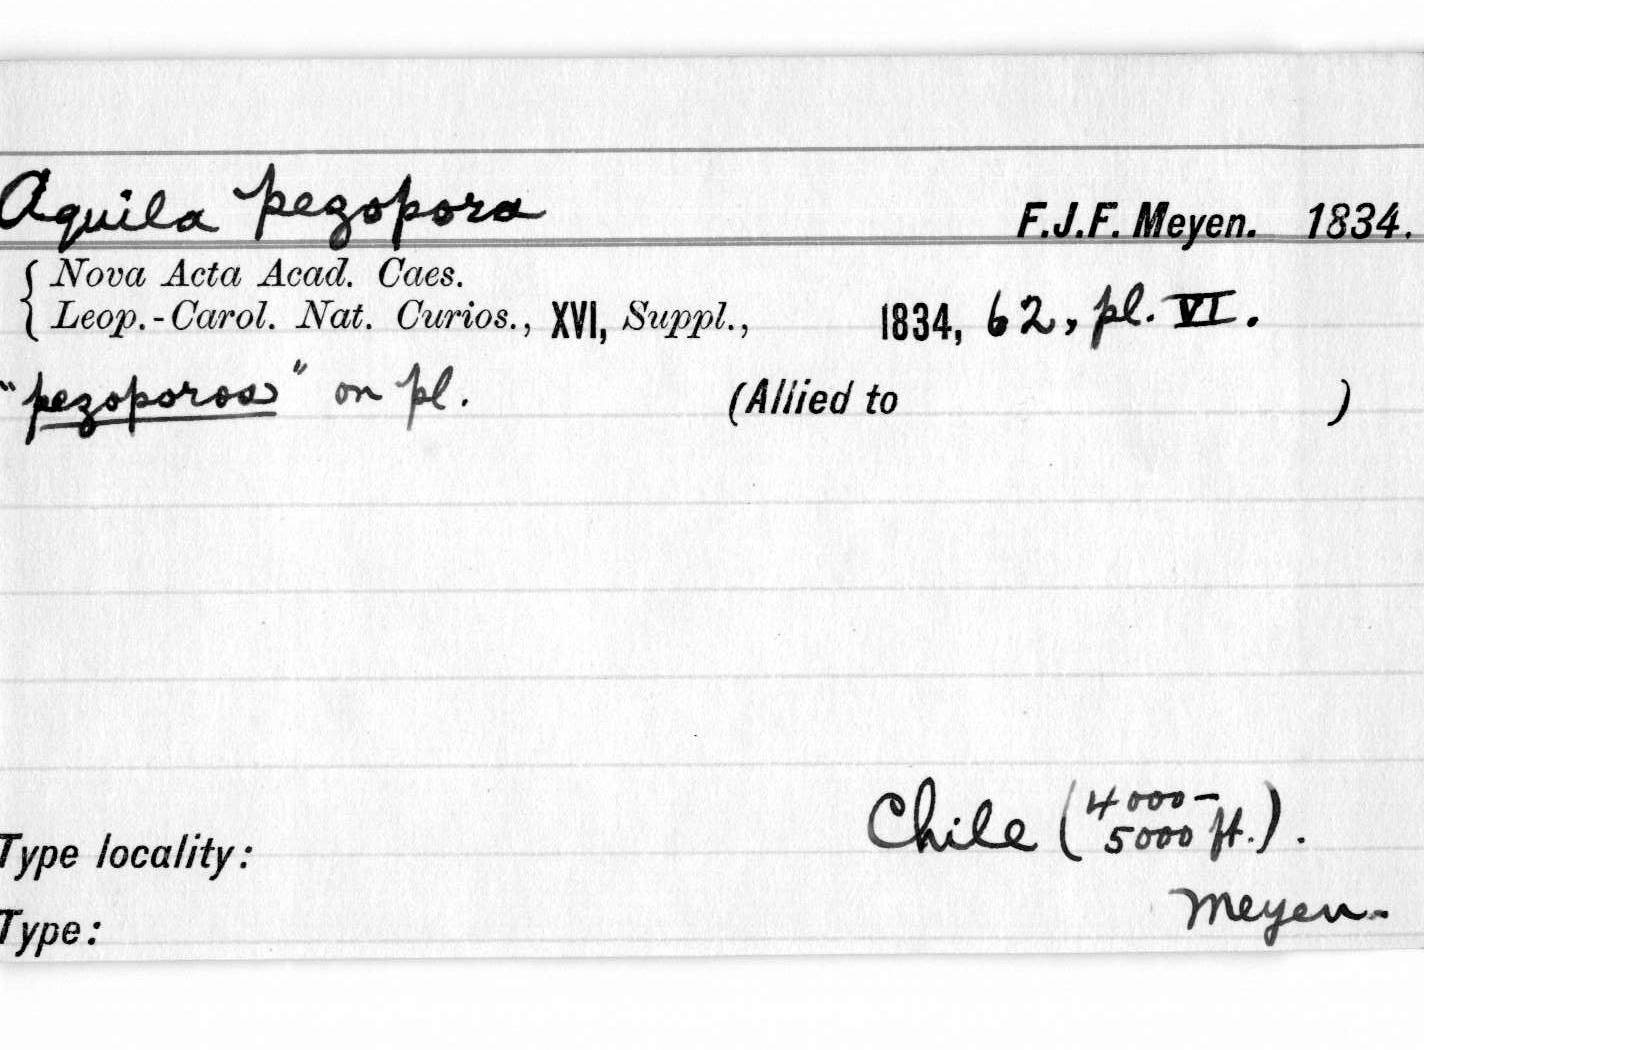 Aquila pezopora F.J.F. Meyen. 1834.
Nova Acta Acad. Caes.
Leop.-Carol. Nat. Curios., XVI, Suppl., 1834, 62, pl. VI.
"pezoporos" on pl. (Allied to )
Chile (4000-
5000 ft.).
Type locality:
Meyen.
Type: